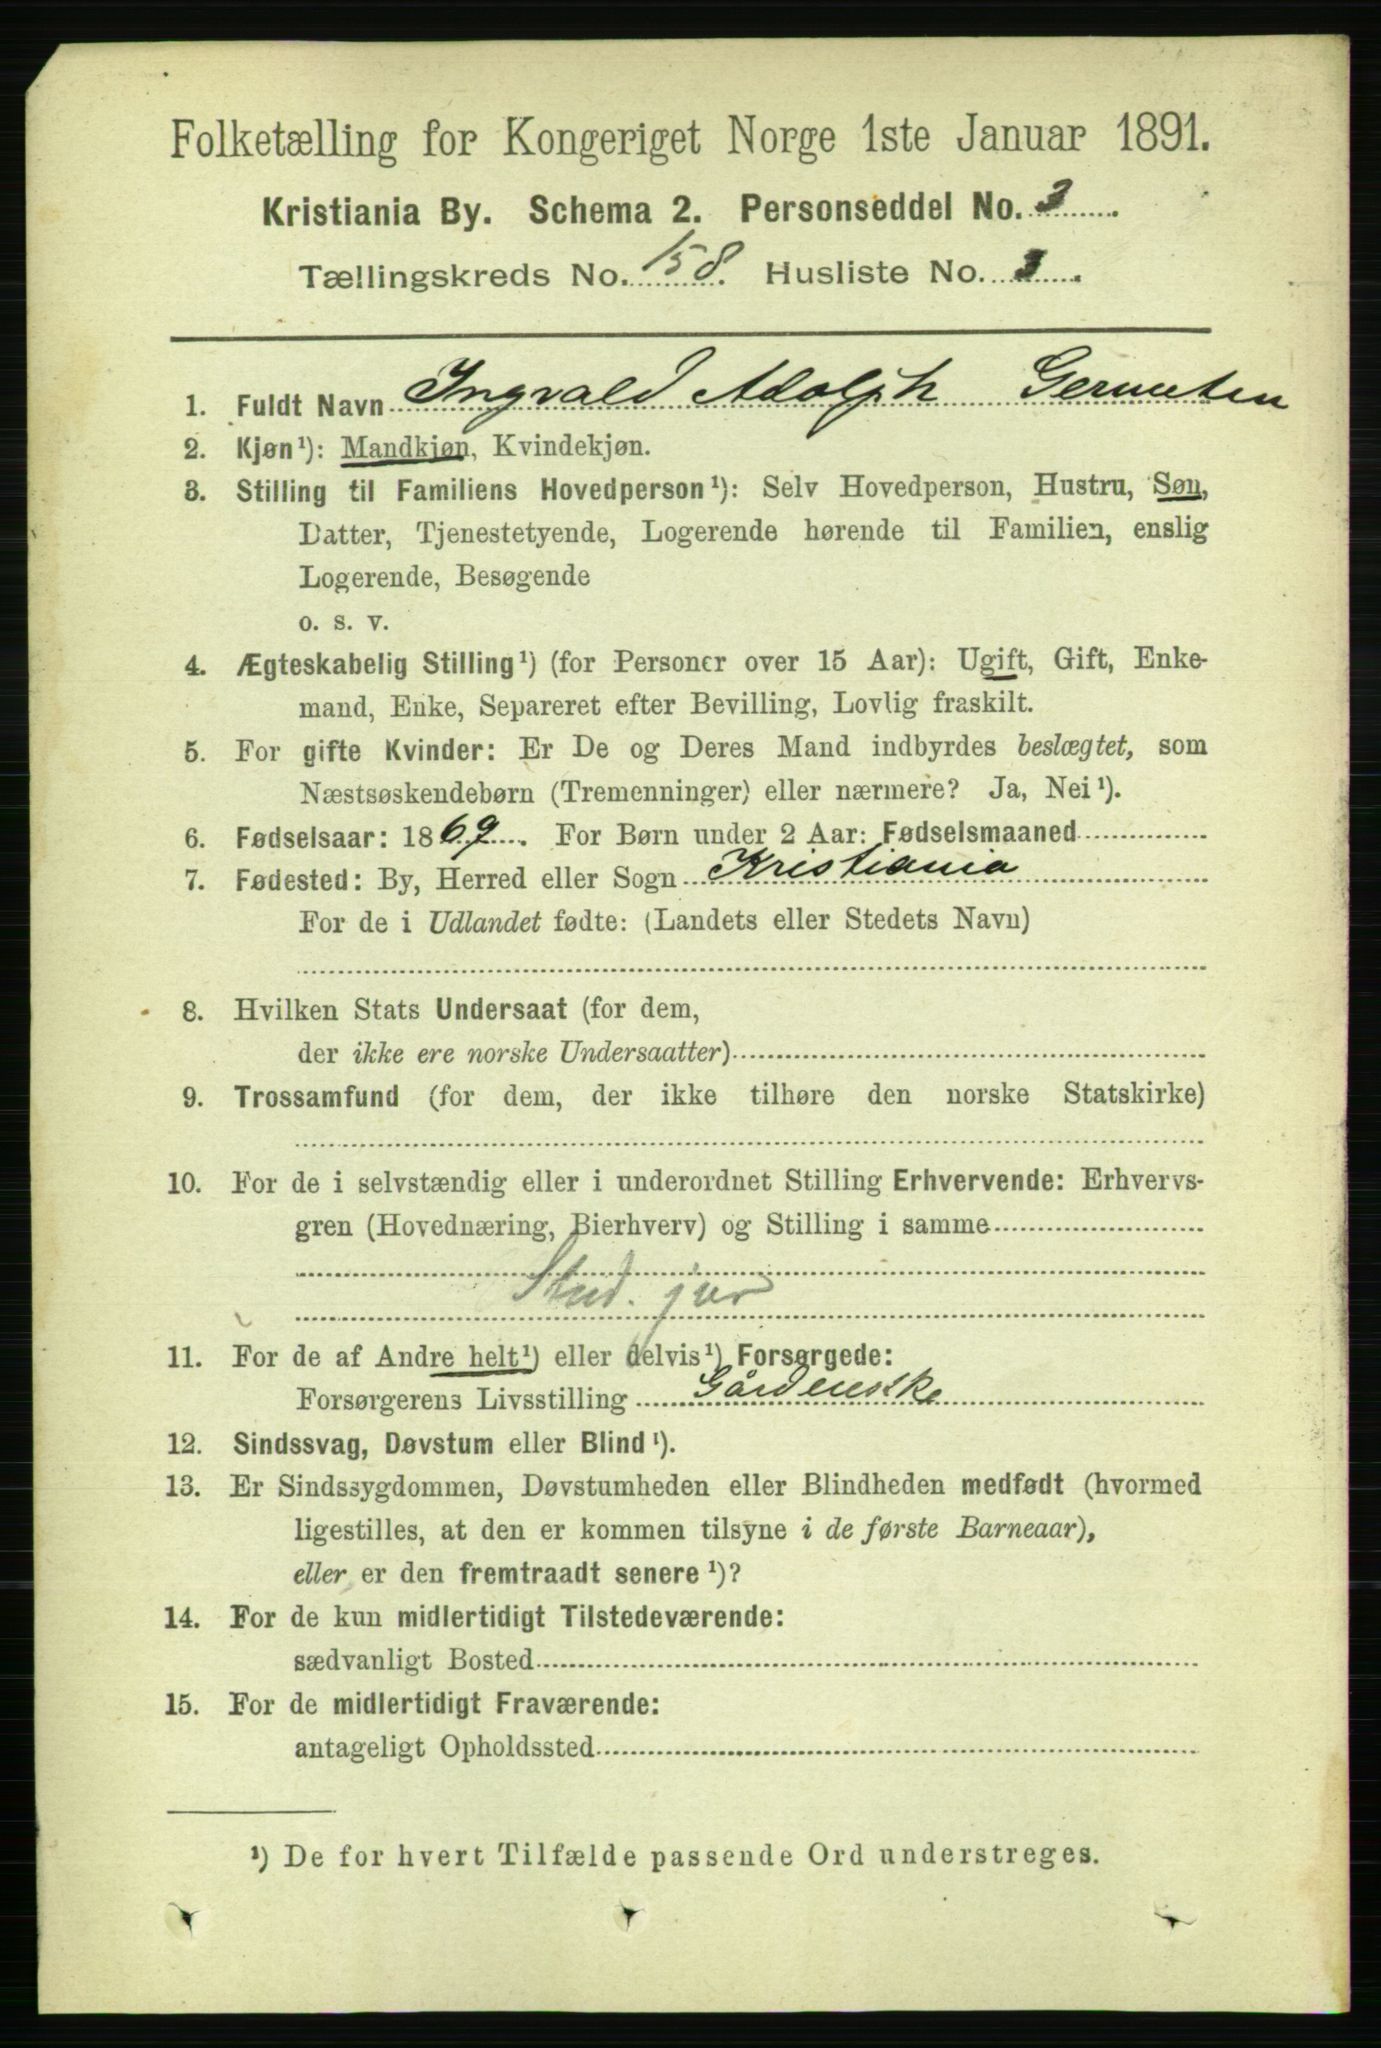 Folketælling for Kongeriget Norge 1ste Januar 1891.
Kristiania By. Schema 2. Personseddel No. 3.
Tællingskreds No. 158. Husliste No. 3.
1. Fuldt Navn Ingvald Adolph
2. Kjøn¹): Mandkjøn, Kvindekjøn.
3. Stilling til Familiens Hovedperson¹): Selv Hovedperson, Hustru, Søn,
Datter, Tjenestetyende, Logerende hørende til Familien, enslig
Logerende, Besøgende
o. s. v.
4. Ægteskabelig Stilling¹) (for Personer over 15 Aar): Ugift, Gift, Enke-
mand, Enke, Separeret efter Bevilling, Lovlig fraskilt.
5. For gifte Kvinder: Er De og Deres Mand indbyrdes beslægtet, som
Næstsøskendebørn (Tremenninger) eller nærmere? Ja, Nei¹).
6. Fødselsaar: 1869. For Børn under 2 Aar: Fødselsmaaned
7. Fødested: By, Herred eller Sogn Kristiania
For de i Udlandet fødte: (Landets eller Stedets Navn)
8. Hvilken Stats Undersaat (for dem,
der ikke ere norske Undersaatter)
9. Trossamfund (for dem, der ikke tilhøre den norske Statskirke)
10. For de i selvstændig eller i underordnet Stilling Erhvervende: Erhvervs-
gren (Hovednæring, Bierhverv) og Stilling i samme
Stud. jur
11. For de af Andre helt¹) eller delvis¹) Forsørgede:
Forsørgerens Livsstilling
12. Sindssvag, Døvstum eller Blind¹).
13. Er Sindssygdommen, Døvstumheden eller Blindheden medfødt (hvormed
ligestilles, at den er kommen tilsyne i de første Barneaar),
eller er den fremtraadt senere¹)?
14. For de kun midlertidigt Tilstedeværende:
sædvanligt Bosted
15. For de midlertidigt Fraværende:
antageligt Opholdssted
¹) De for hvert Tilfælde passende Ord understreges.